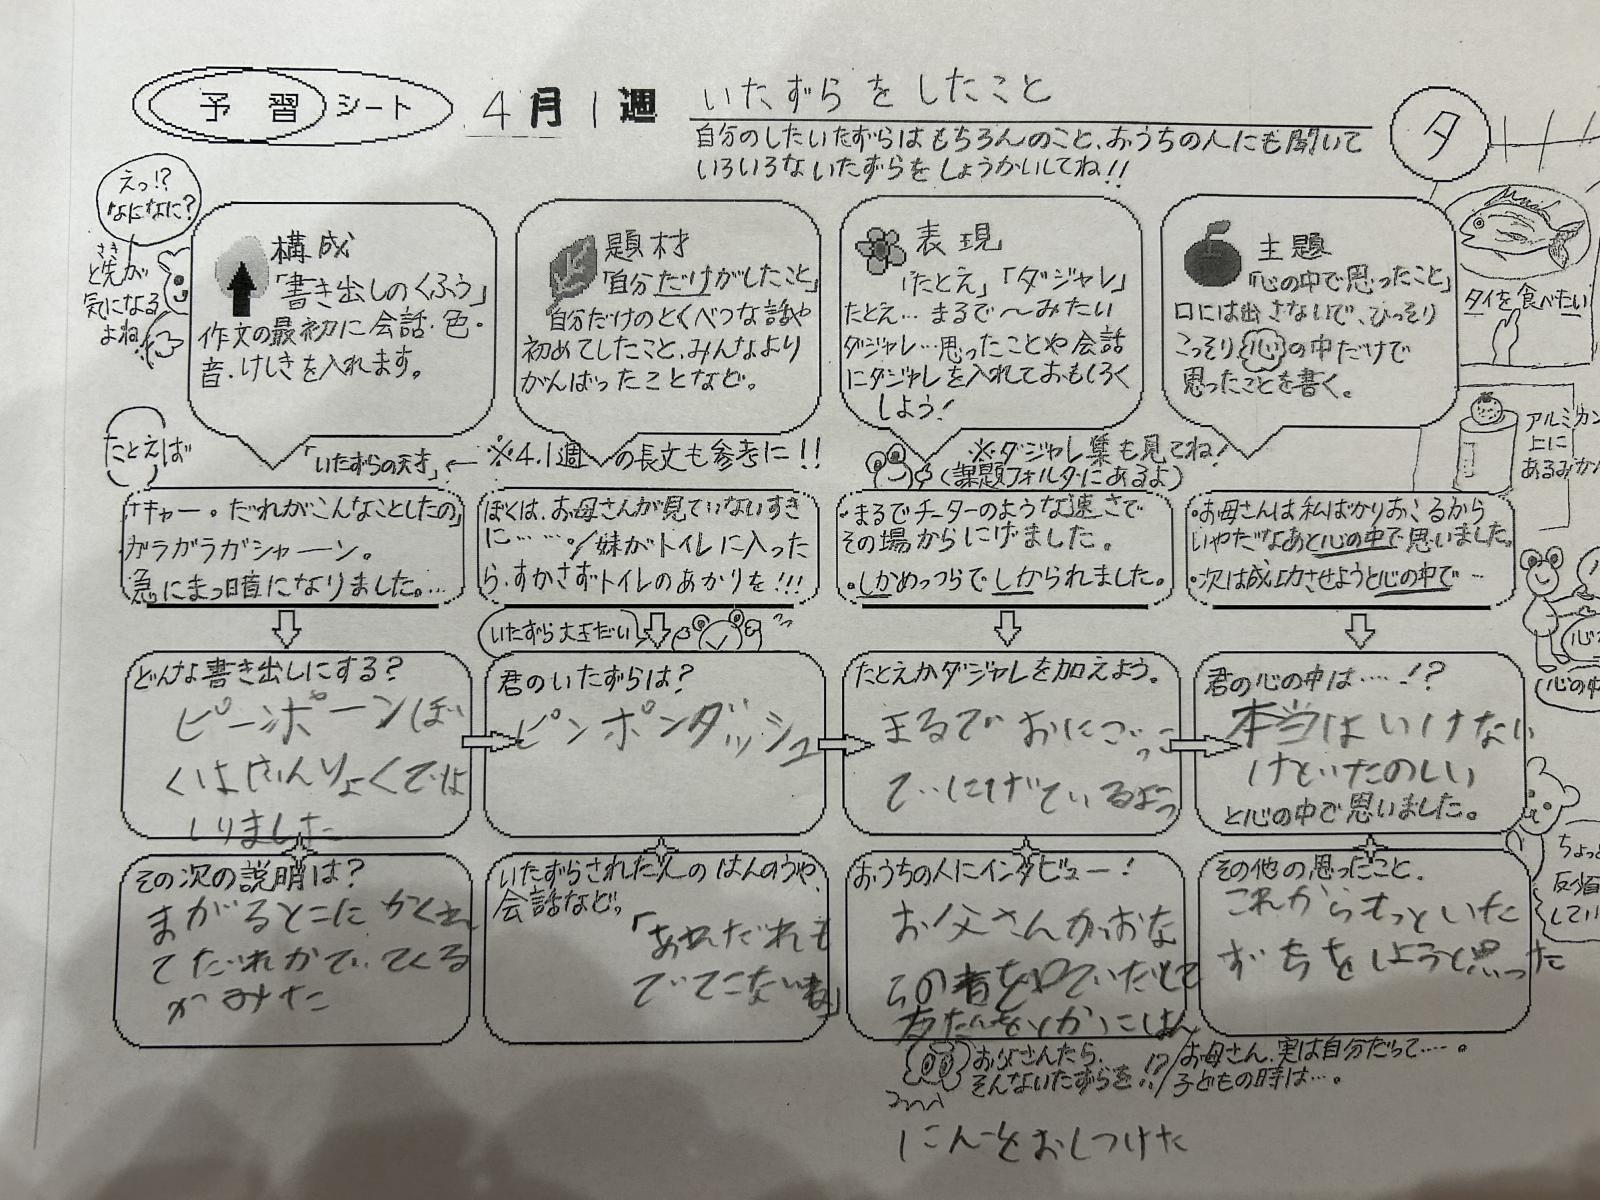 予習シート 4月1週 いたずらをしたこと
自分のしたいたずらはもちろんのこと、おうちの人にも聞いて
いろいろないたずらをしょうかいしてね!!
タ
えっ!?
なになに?
さき
と先が
気になる
よね
構成
「書き出しのくふう」
作文の最初に会話・色・
音、けしきを入れます。
題材
「自分だけがしたこと」
自分だけのとくべつな話や
初めてしたこと、みんなより
がんばったことなど。
表現
「たとえ」「ダジャレ」
たとえ…まるで〜みたい
ダジャレ…思ったことや会話
にダジャレを入れておもしろく
しよう!
主題
「心の中で思ったこと」
口には出さないで、ひっそり
こっそり心の中だけで
思ったことを書く。
タイを食べたい
アルミカン
上に
あるみかん
たとえば
「いたずらの天才」← ※4.1週の長文も参考に!!
※ダジャレ集も見てね!
(課題フォルダにあるよ)
「キャー。だれがこんなことしたの」
ガラガラガシャーン。
急にまっ暗になりました。…
ぼくは、お母さんが見ていないすき
に……。/妹がトイレに入った
ら、すかさずトイレのあかりを!!!
・まるでチーターのような速さで
その場からにげました。
・しかめっつらでしかられました。
・お母さんは私ばかりおこるから
いやだなあと心の中で思いました。
・次は成功させようと心の中で…
いたずら大王だい
心の中
どんな書き出しにする?
ピーンポーンぼ
くはぜんりょくではしりました
君のいたずらは?
ピンポンダッシュ
たとえかダジャレを加えよう。
まるでおにごっこ
でにげているよう
君の心の中は……!?
本当はいけない
けどたのしい
と心の中で思いました。
その次の説明は?
まがるとこにかくれ
てだれかでてくる
かみた
いたずらされた人のはんのうや、
会話など。
「あれだれも
でてこないね」
おうちの人にインタビュー!
お父さんがおな
らの音を
その他の思ったこと、
これからもっといた
ずらをしようと思った
ちょっと
反省
してい
お父さんたら、
そんないたずらを!?
お母さん、実は自分だって…。
子どもの時は…。
おしつけた